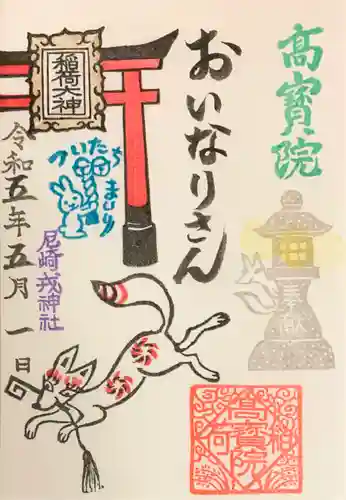 高寳院
おいなりさん
稲荷大神
ついたち
まいり
令和五年五月一日
尼崎戎神社
奉献
稲荷
高寳院